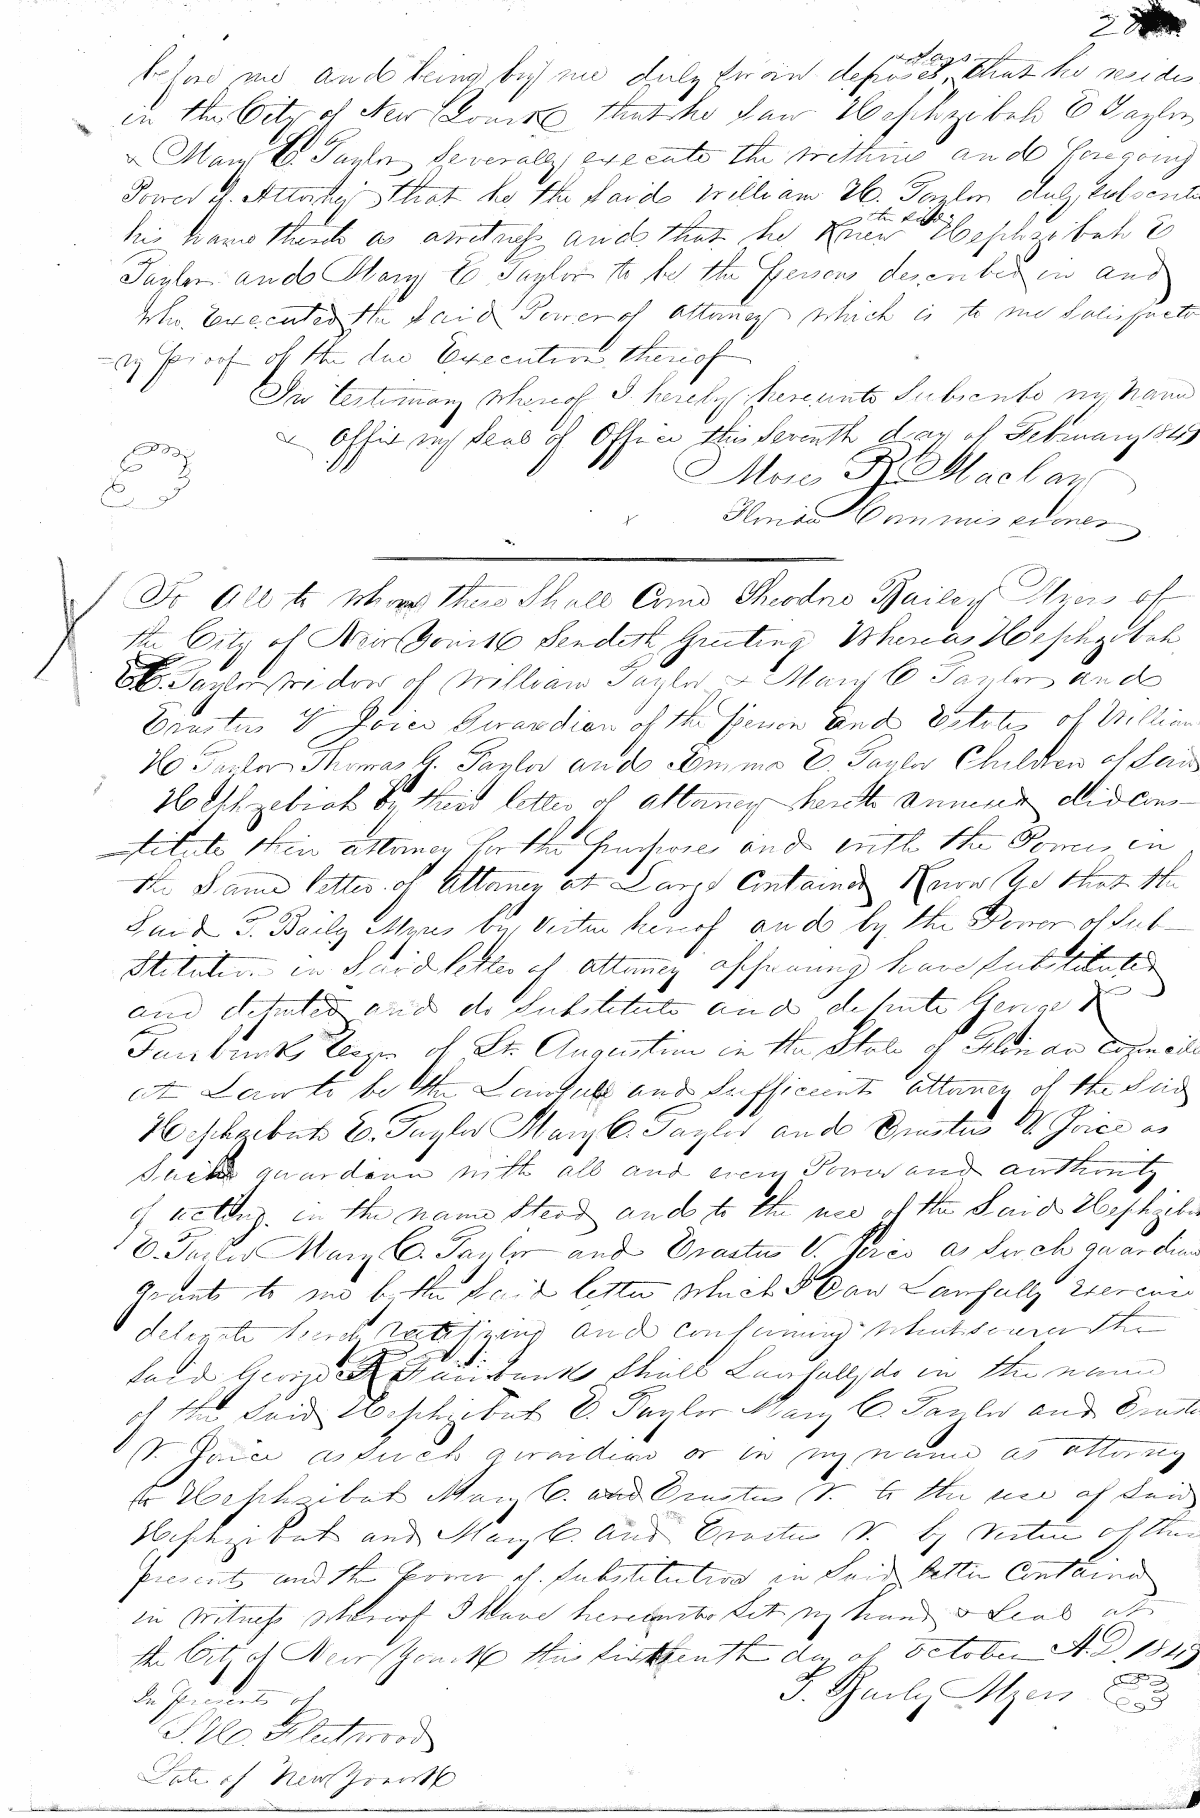 before me and being by me duly sworn deposes & says that he resides
in the City of New Yourk that he saw Hephzibah E Taylor
& Mary C. Taylor severally execute the withine and foregoing
Power of Attorney that he the said William H. Taylor duly subscribe
his name thereto as a witness and that he knew the said Hephzibah E
Taylor and Mary C Taylor to be the Persons described in and
who Executed the said Power of attorney which is to me satisfacto
=ry proof of the due Execution thereof
In testimony whereof I hereby hereunto subscribe my name
& affix my seal of office this seventh day of February 1849
Moses B. Maclay
Florida Commissioner
To All to whom these Shall Come Theodore Bailey Myers of
the City of New Yourk Sendeth Greeting Whereas Hephzibah
E. Taylor widow of William Taylor & Mary C Taylor and
Erastus V Joice Guardian of the Person and Estates of William
H Taylor Thomas G. Taylor and Emma E. Taylor Children of Said
Hephzebiah by their letter of attorney hereto annexed did cons-
=titute their attorney for the purposes and with the Powers in
the Same letter of attorney at Large Contained Know Ye that the
Said T. Baily Myres by virtue hereof and by the Power of Sub-
stitution in Said letter of attorney appearing have substituted
and deputed and do substitute and depute George R
Fairbanks Esqr of St. Augustine in the State of Florida Councile
at Law to be the Lawfull and Sufficient attorney of the Said
Hephzibah E. Taylor Mary C. Taylor and Erastus V. Joice as
such guardian with all and every Power and authority
of acting in the name stead and to the use of the Said Hephzibah
E. Taylor Mary C. Taylor and Erastus V. Joice as Such guardian
grants to me by the Said letter which I Can Lawfully exercise
delegate hereby ratifying and confirming whatsoever the
Said George R Fairbanks Shall Lawfully do in the name
of the Said Hephzibah E Taylor Mary C. Taylor and Erastus
V. Joice as such guardian or in my name as attorney
to Hephzibah Mary C. and Erastus V. to the use of Said
Hephzibah and Mary C. and Erastus V. by virtue of these
Presents and the power of substitution in Said letter Contained
in witness whereof I have hereunto Set my hand & Seal at
the City of New Yourk this sixteenth day of October A.D. 1849
In Presents of
T. Baily Myers
S. H. Fleetwood
Late of New Yourk